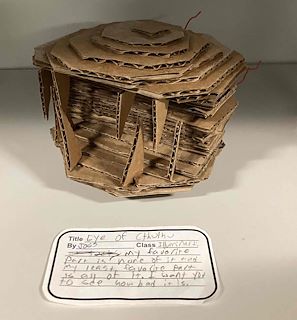 Title Eye of Cthulhu
By Joss Class
my favorite
Part is none of it and
my least favorite part
is all of it. I want you
to see how bad it is.